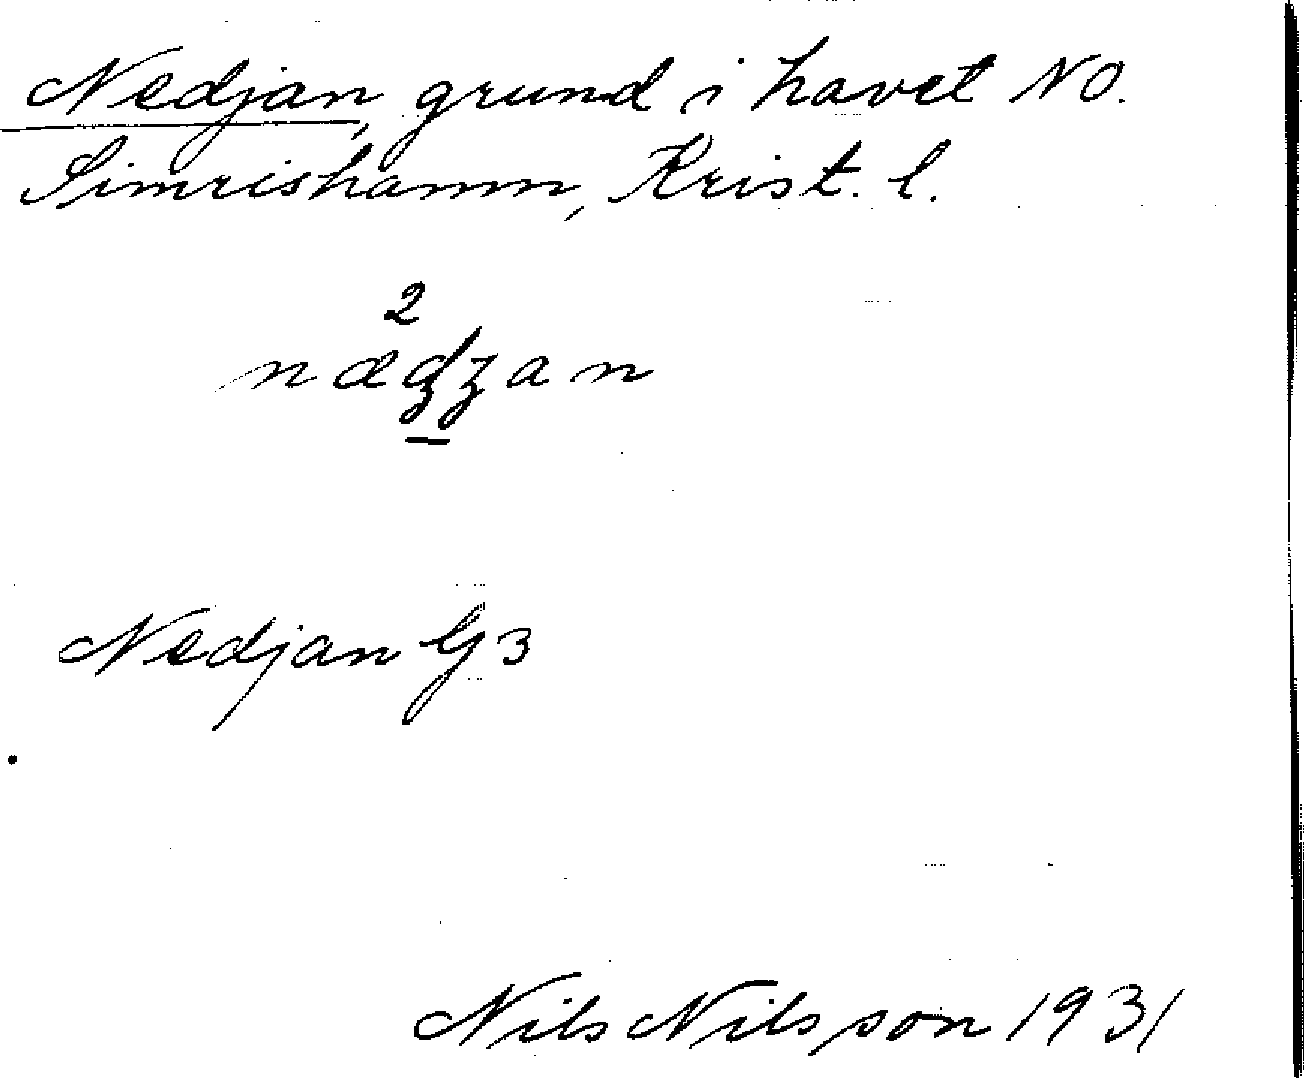 Nedjan, grund i havet NO.
Simrishamn, Krist. l.
2
nædȥan
Nedjan G3
Nils Nilsson 1931